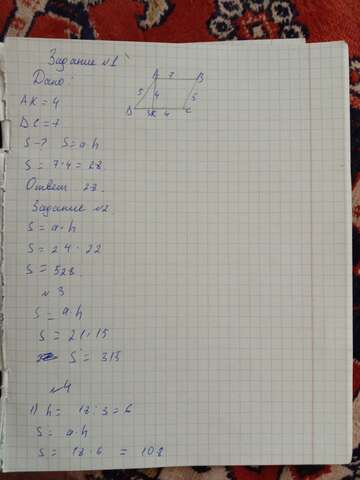 Задание №1
Дано:
A 7 B
5 4 5
D 3 K 4 C
AK = 4
DC = 7
S-? S = a·h
S = 7·4 = 28.
Ответ 28.
Задание №2.
S = a·h
S = 24·22
S = 528.
№3
S = a·h
S = 21·15
S = 315
№4
1) h = 18:3 = 6
S = a·h
S = 18·6 = 108